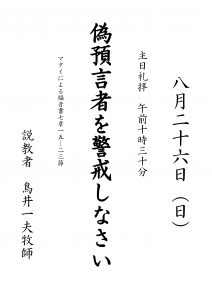 八月二十六日（日）
主日礼拝　午前十時三十分
偽預言者を警戒しなさい
マタイによる福音書七章一五―二三節
説教者　鳥井一夫牧師